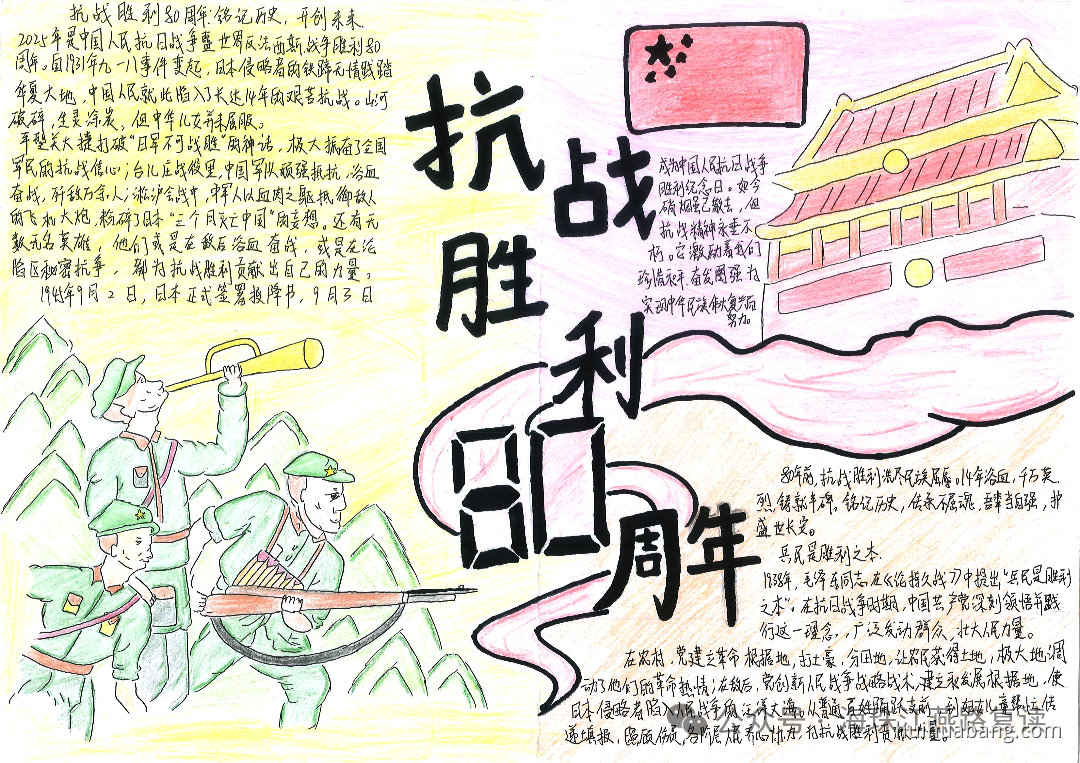 抗战胜利80周年:铭记历史,开创未来
2025年是中国人民抗日战争暨世界反法西斯战争胜利80
周年。自1931年九一八事件变起,日本侵略者的铁蹄无情践踏
华夏大地,中国人民就此陷入了长达14年的艰苦抗战。山河
破碎,生灵涂炭,但中华儿女并未屈服。
平型关大捷打破“日军不可战胜”的神话,极大振奋了全国
军民的抗战信心;台儿庄战役里,中国军队顽强抵抗,浴血
奋战,歼敌万余人;淞沪会战中,中军人以血肉之躯抵御敌人
的飞机大炮,粉碎了日本“三个月灭亡中国”的妄想。还有无
数无名英雄,他们或是在敌后浴血奋战,或是在沦
陷区秘密抗争,都为抗战胜利贡献出自己的力量。
1945年9月2日,日本正式签署投降书,9月3日
抗战
胜利
80
周年
成为中国人民抗日战争
胜利纪念日。如今
硝烟虽已散去,但
抗战精神永垂不
朽。它激励着我们
珍惜和平,奋发图强,为
实现中华民族伟大复兴而
努力。
80年前,抗战胜利洗尽民族屈辱。14年浴血,千万英
烈铸就丰碑。铭记历史,传承不屈魂,吾辈当自强,护
盛世长安。
兵民是胜利之本
1938年,毛泽东同志在《论持久战》中提出“兵民是胜利
之本”。在抗日战争时期,中国共产党深刻领悟并践
行这一理念,广泛发动群众,壮大人民力量。
在农村,党建立革命根据地,打土豪、分田地,让农民获得土地,极大地调
动了他们的革命热情;在敌后,党创新人民战争战略战术,建立和发展根据地,使
日本侵略者陷入人民战争的汪洋大海。从普通百姓踊跃支前
递情报,
公众号·海珠江燕路复读